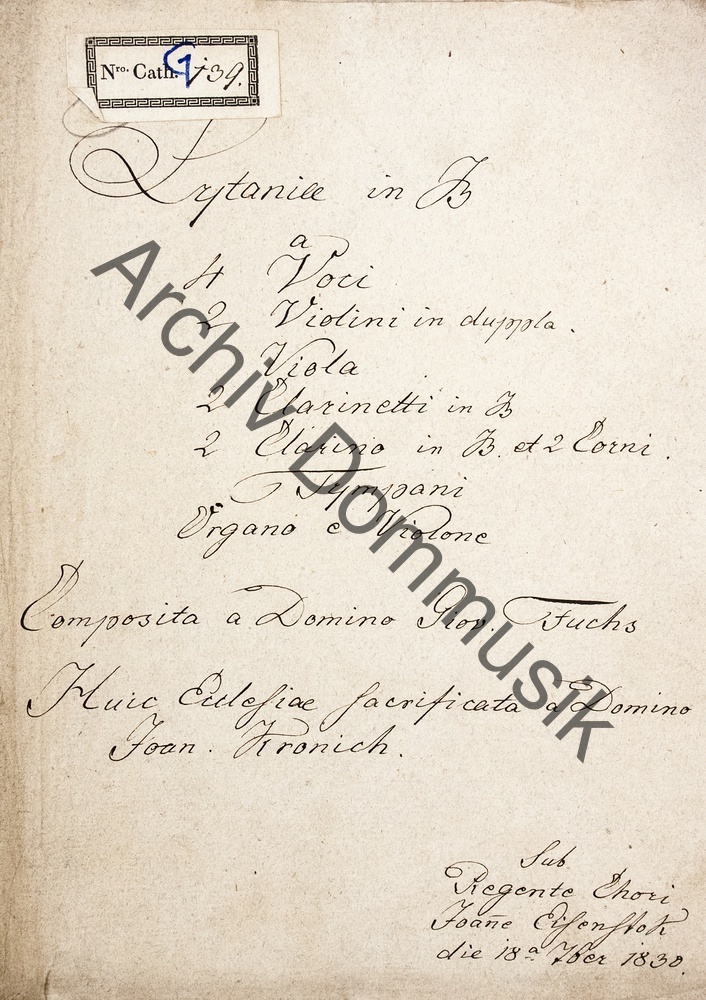 Nro. Cath. G i39.
Lytaniæ in B
a
4 Voci
2 Violini in duppla.
Viola
2 Clarinetti in B
2 Clarino in B. et 2 Corni.
Tympani
Organo e Violone
Composita a Domino Giov. Fuchs
Huic Eclesiæ sacrificata a Domino
Joan. Kronich.
Sub
Regente Chori
Joañe Eisenstok
die 18a 7ber 1830.
Archiv Dommusik